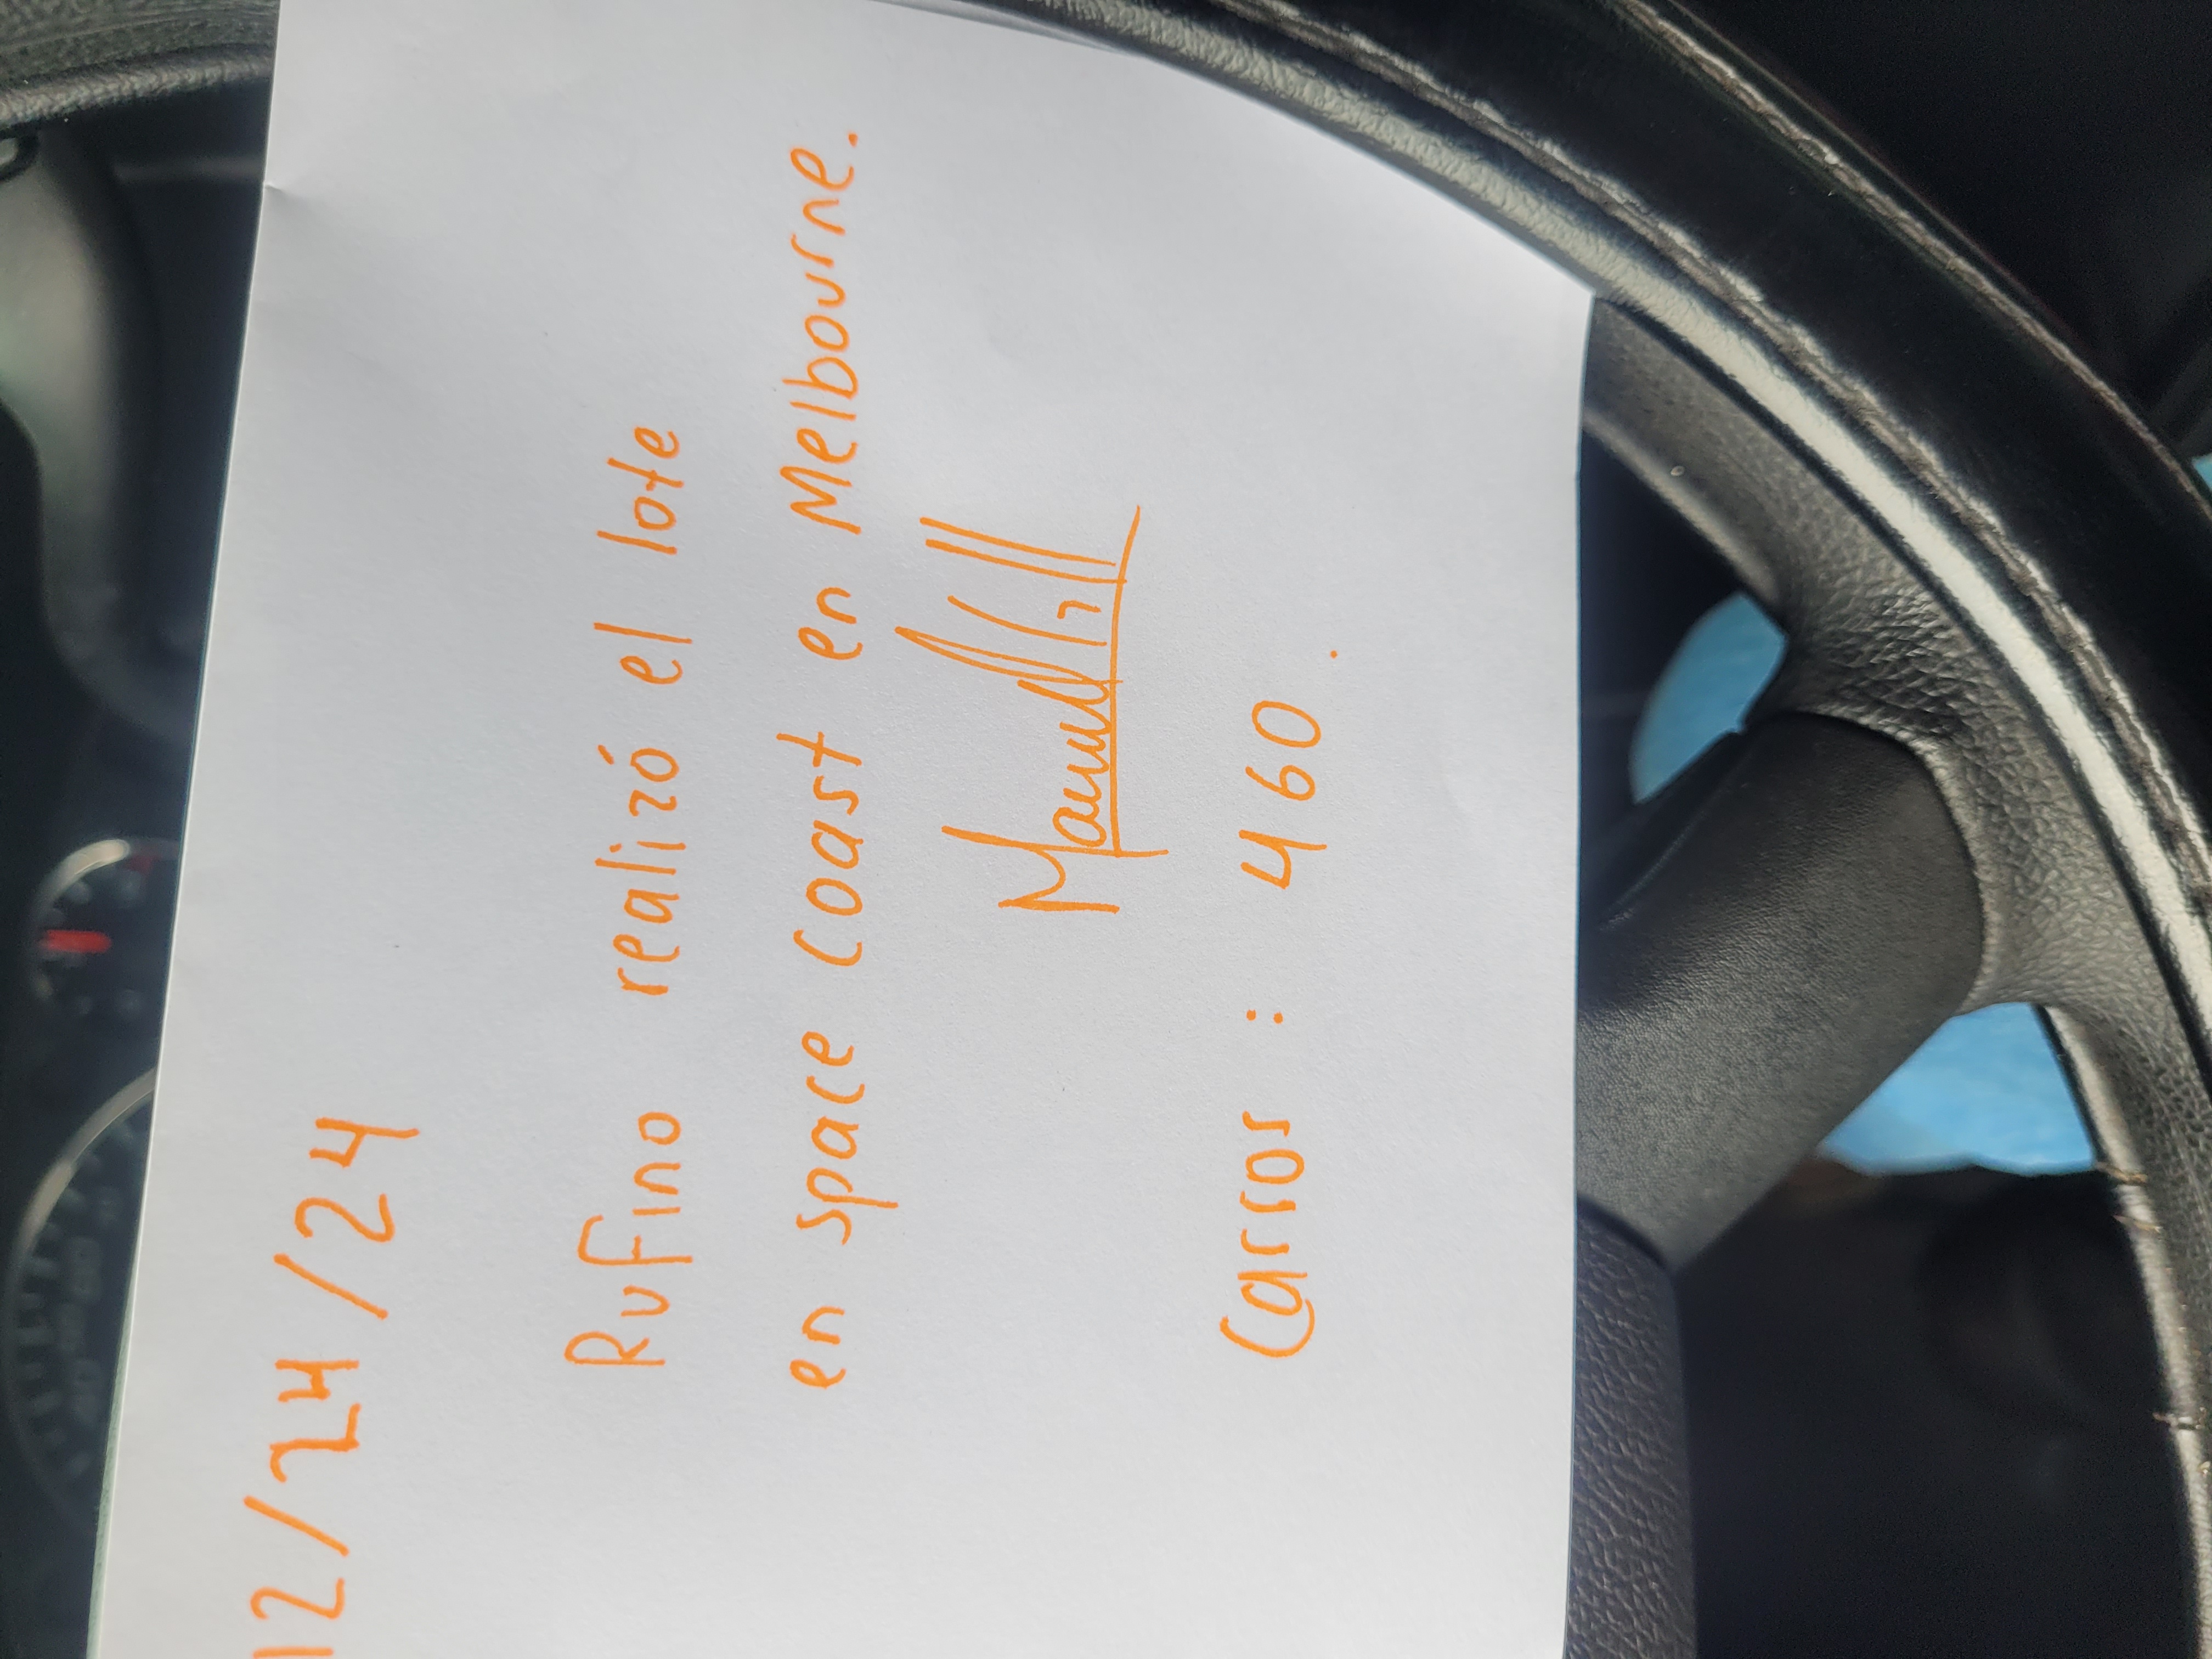 12/24/24
Rufino realizó el lote
en space coast en Melbourne.
Carros: 460.